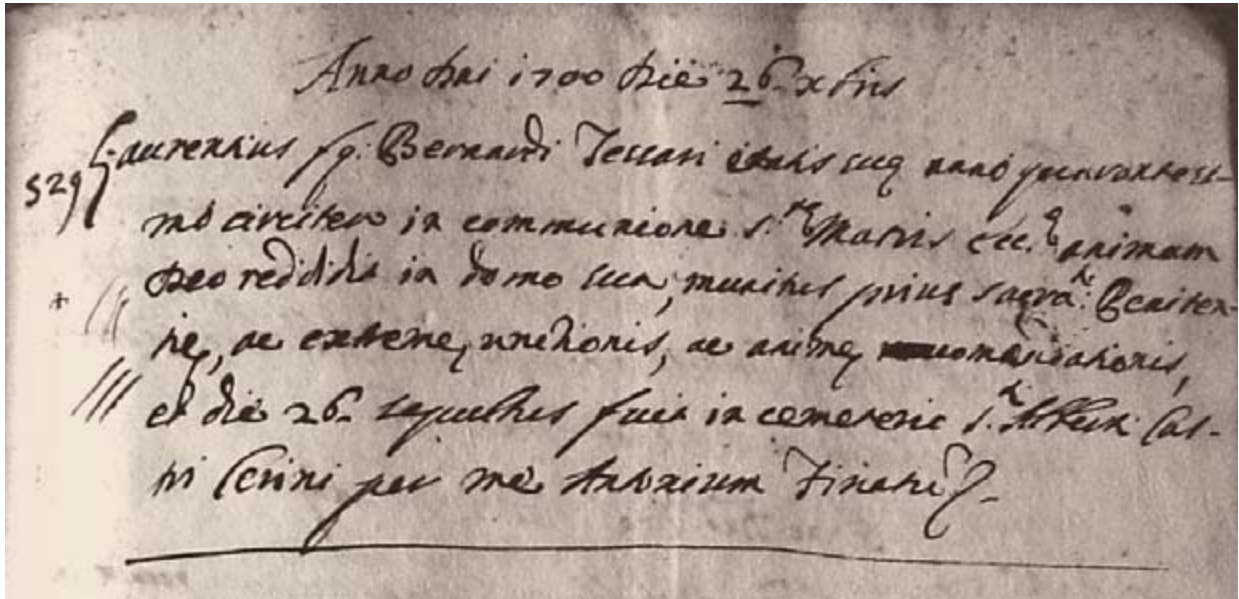 Anno Dni 1700 Die 26 xbris
529 Laurentius fq: Bernardi Tessari etatis suę anno quinquagesi-
mo circiter in communione S.tę Matris Ecc.ę animam
Deo reddidit in domo sua, munitus prius sacra.ti Peniten-
tię, ac extremę unctionis, ac animę comendationis,
et die 26. sepultus fuit in cemeterio S.ti Cas-
tri Cerini per me Antonium